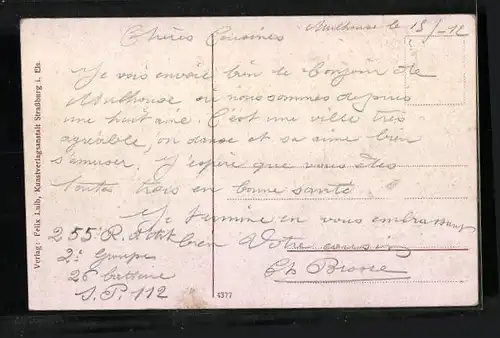 Mulhouse le 15/-12
Chères Cousines
Je vois envoie bien le bonjour de
Mulhouse ou nous sommes depuis
une huitaine. C'est une ville très
agréable, on danse et sa aime bien
s'amuser. J'espère que vous êtes
toutes trois en bonne santé
Je termine en vous embrassant
bien Votre cousin
Ch Brosse
255 R. Art
2e Groupe
26 batterie
S.P. 112
Verlag: Felix Luib, Kunstverlagsanstalt Straßburg i. Els.
4377